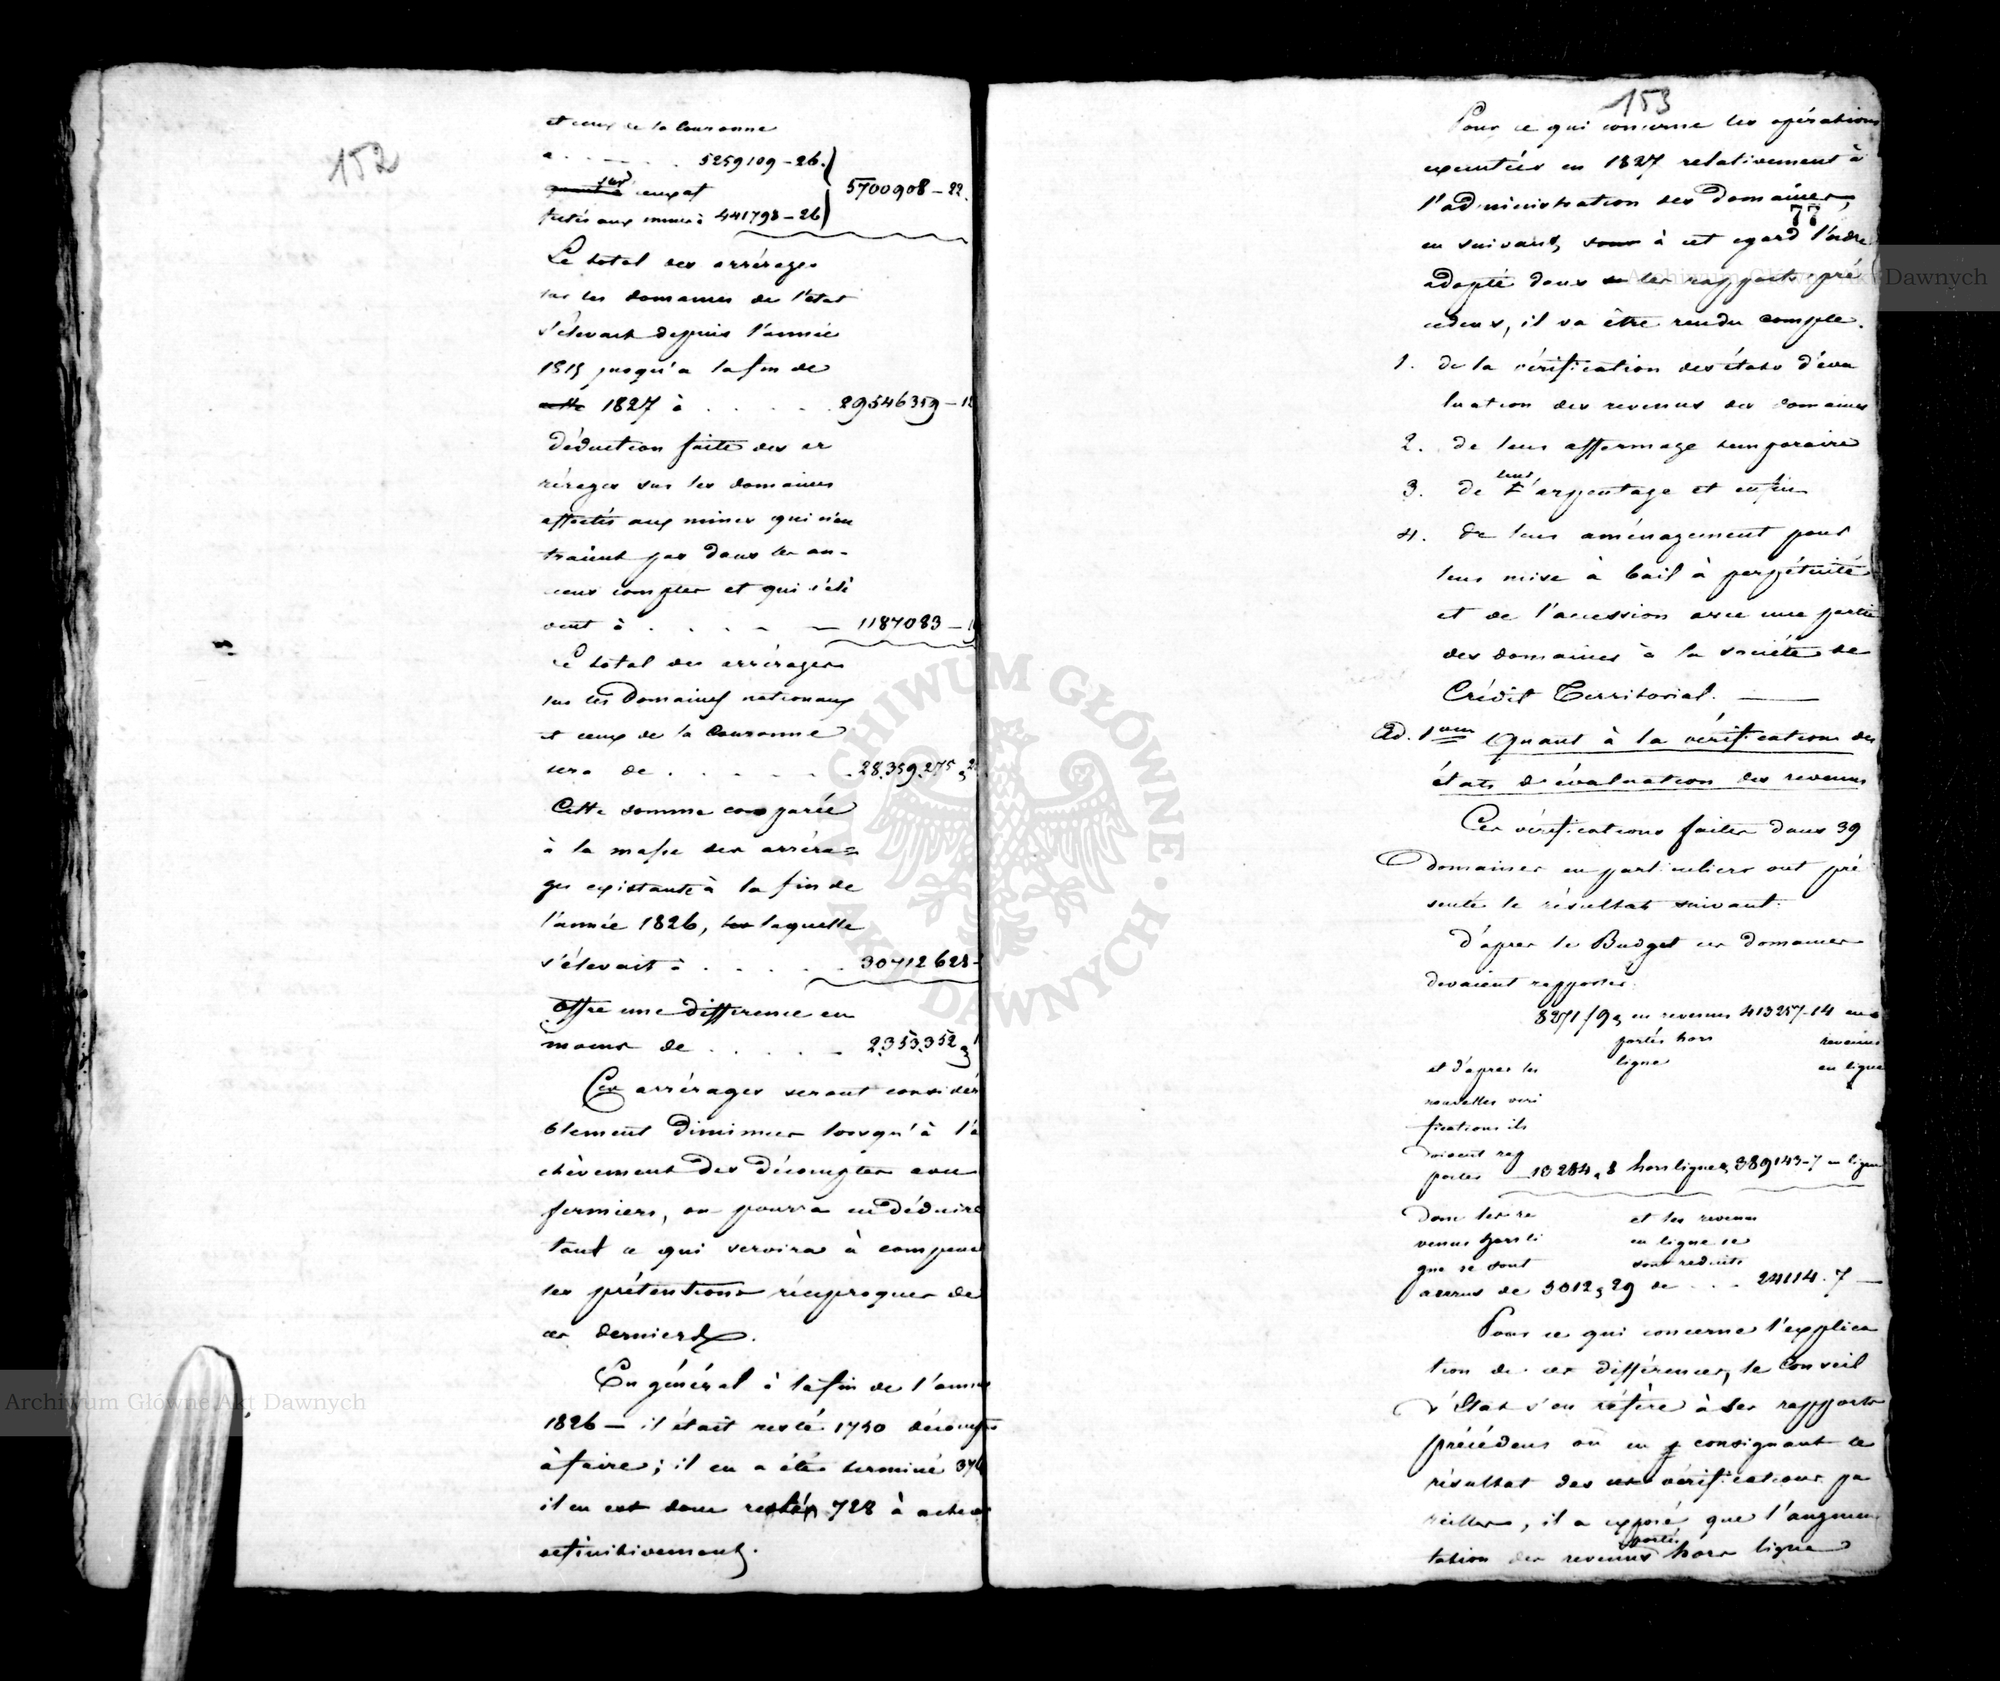 152
et ceux de la Couronne
à . . . . 5259109 – 26.
sur ceux af
fectés aux mines à 441798 – 26
5700908 – 22.
Le total des arrérages
sur les domaines de l'état
s'élevait depuis l'année
1815 jusqu'à la fin de
cette 1827 à . . . . . 29546359 – 12
déduction faite des ar
rérages sur les domaines
affectés aux mines qui n'en
traient pas dans les an-
ciens comptes et qui s'élè
vent à . . . . 1187083 –
le total des arrérages
sur les Domaines nationaux
et ceux de la Couronne
sera de . . . . . . 28.359.275,
Cette somme comparée
à la masse des arréra=
ges existante à la fin de
l'année 1826, laquelle
s'élevait à . . . . . 30712628 –
offre une différence en
moins de . . . . . 2.353.352,
Ces arrérages seront considéra
blement diminués lorsqu'à l'a
chèvement des décomptes avec
fermiers, on pourra en déduire
tout ce qui servira à compenser
les prétentions réciproques de
ces derniers.
En général à la fin de l'année
1826 – il était resté 1750 décomptes
à faire; il en a été terminé
il en est donc restés 728 à achever
définitivement.
153
Pour ce qui concerne les opérations
executées en 1827 relativement à
l'administration des Domaines,
77
en suivant, sous à cet egard l'ordre
adopté dans les rapports pré
cedens, il va être rendu compte.
1. de la vérification des états d'éva
luation des revenus des domaines
2. de leur affermage temporaire
3. de leur arpentage et enfin
4. de leur aménagement pour
leur mise à bail à perpétuité
et de l'accession avec une partie
des domaines à la société de
Crédit Territorial. ——
Ad. 1um Quant à la vérification des
états d'évaluation des revenus
Ces vérifications faites dans 39
domaines en particuliers ont pré
senté le résultat suivant.
d'après le Budget ces domaines
devaient rapporter:
8271/9, en revenus 413257-14 en
portés hors revenus
et d'après les ligne en ligne
nouvelles véri
fications ils
doivent rap
porter – 13284,8 hors ligne, 389143-7 en ligne
Donc les re et les revenus
venus hors li en ligne se
gne se sont sont reduits
accrus de 5012,29 de . . . 24114.7 —
Pour ce qui concerne l'explica
tion de ces différences, le Conseil
d'État s'en réfère à ses rapports
précédens où en y consignant le
résultat des vérifications pa
reilles, il a exposé que l'augmen
tation des revenus portés hors ligne
Archiwum Główne Akt Dawnych
Archiwum Główne Akt Dawnych
ARCHIWUM GŁÓWNE AKT DAWNYCH